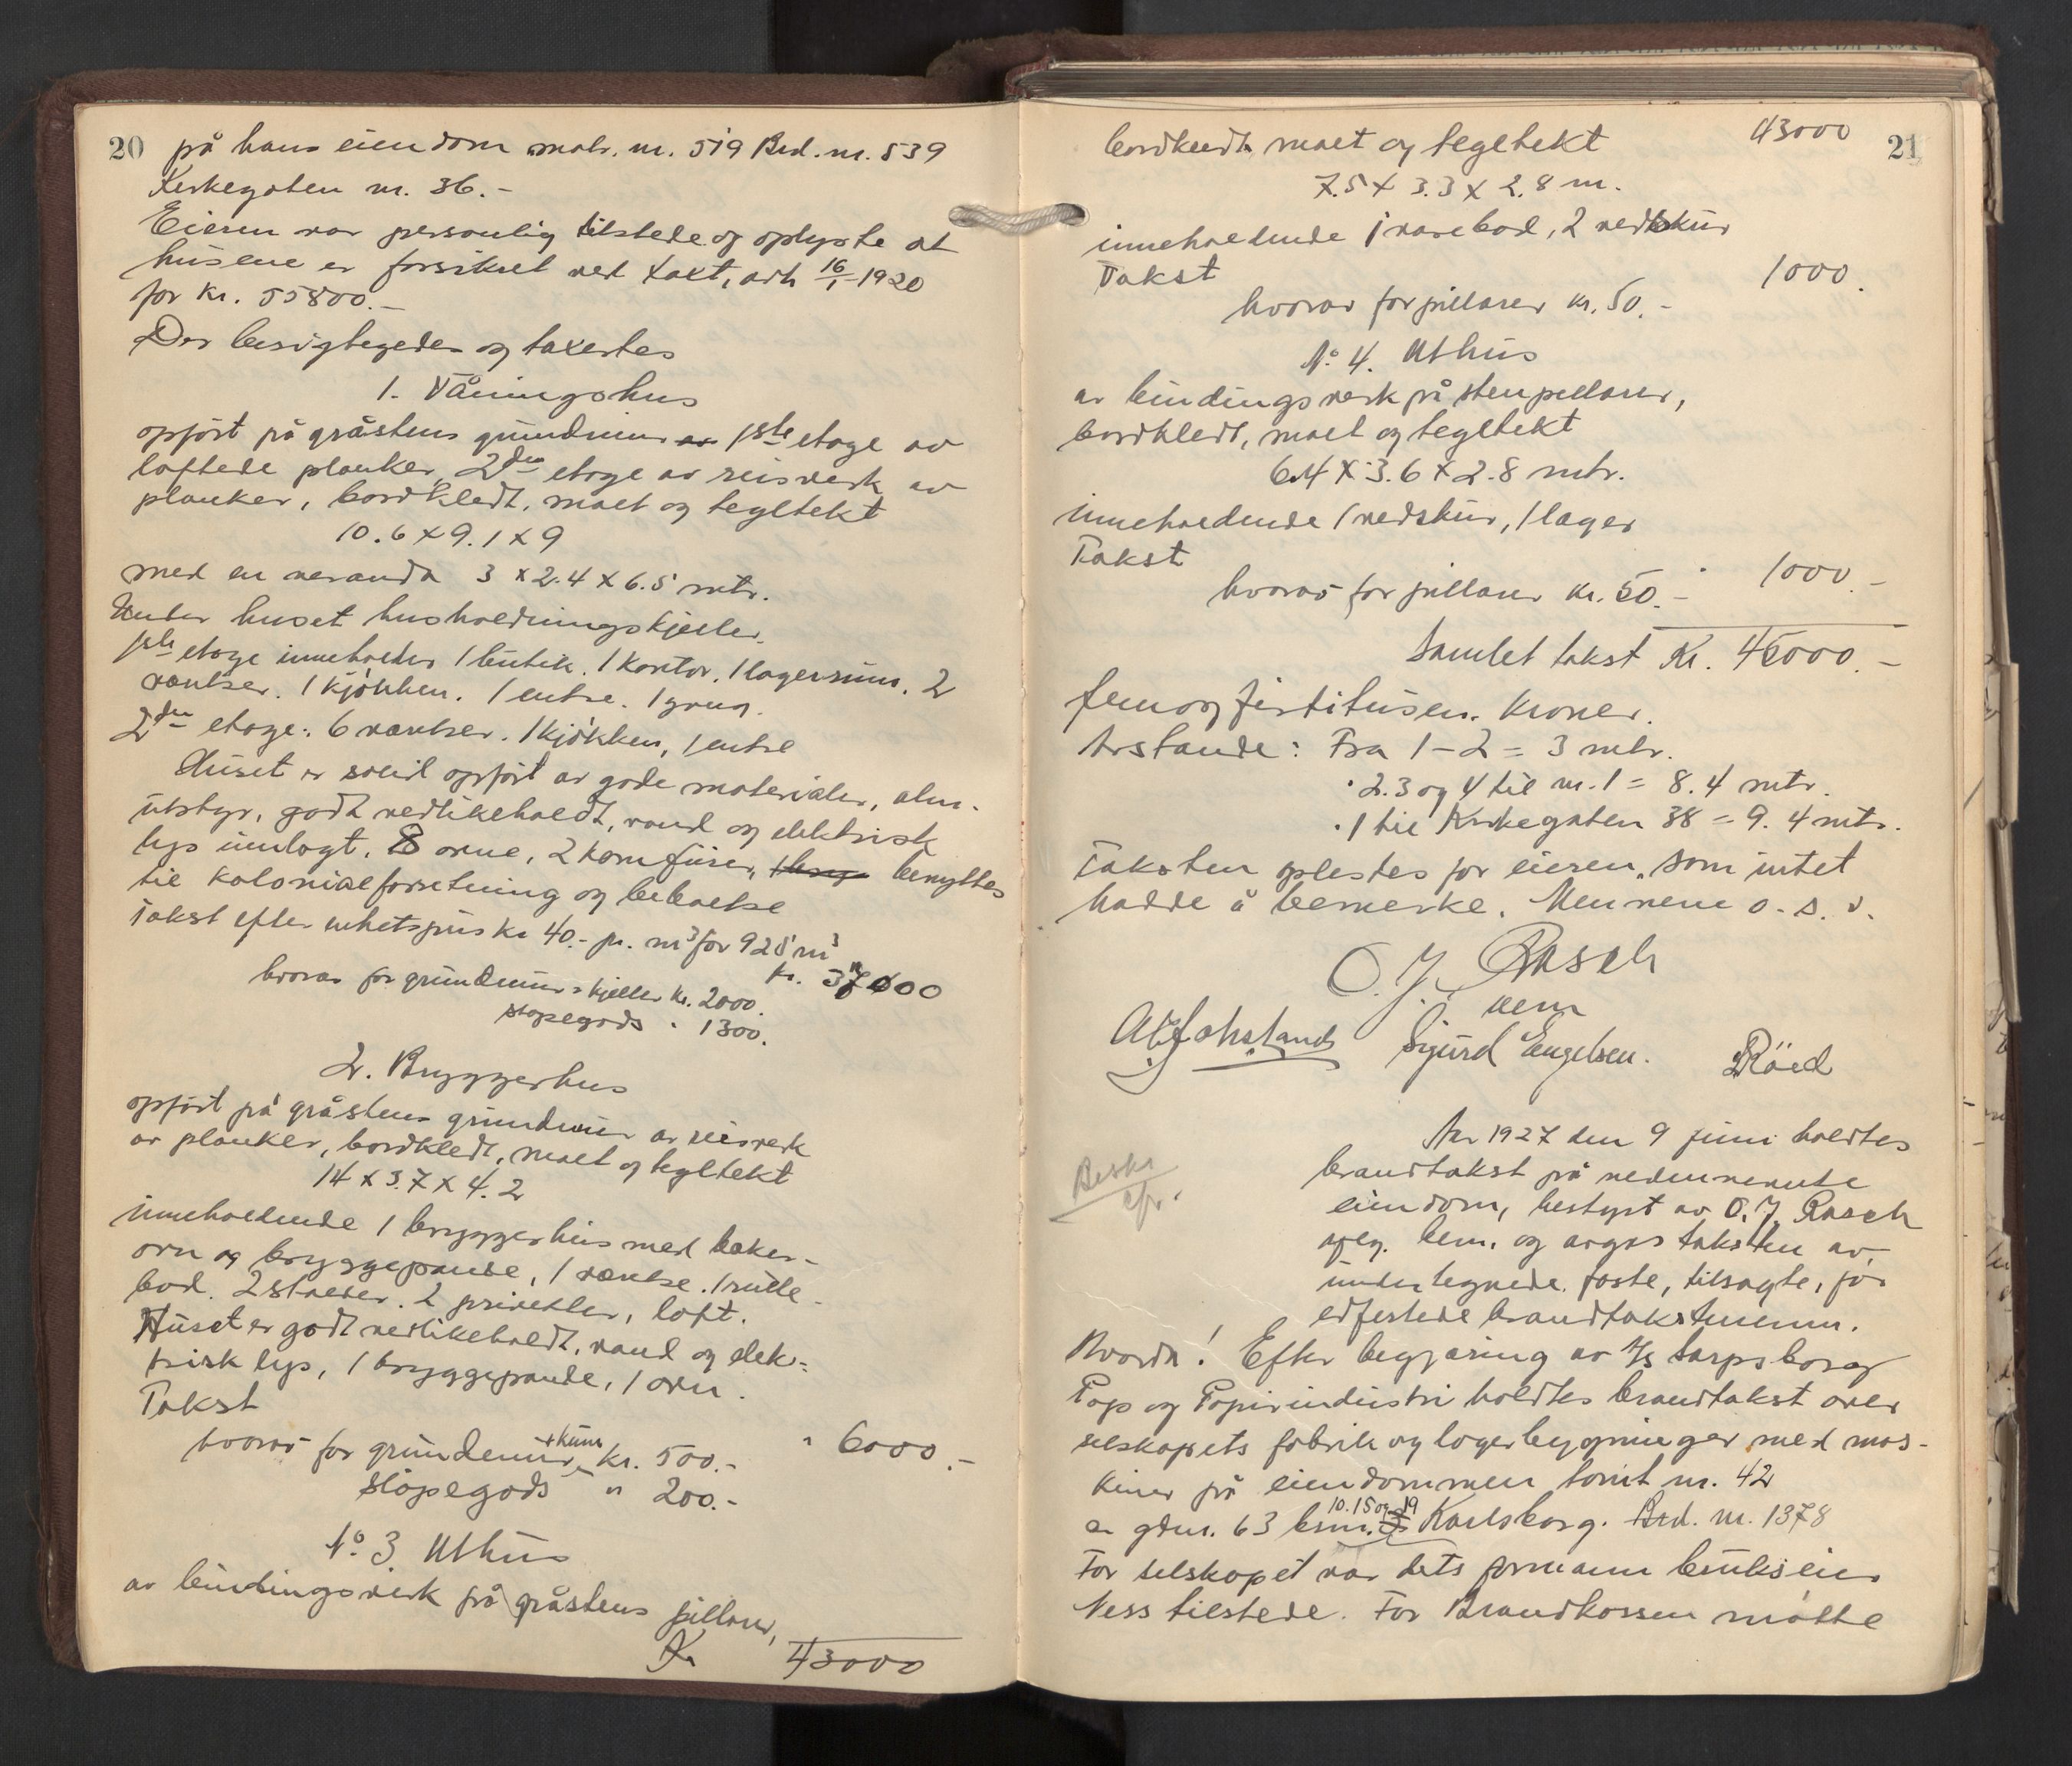 20 på hans eiendom matr. nr. 519 Brd. nr. 539
Kirkegaten nr. 36.-
Eieren var personlig tilstede og oplyste at
husene er forsikret ved taxt, avh 16/1-1920
for kr. 55800.-
Der besigtigedes og taxertes
1. Våningshus
opført på gråstens grundmur 1ste etage av
laftede planker, 2den etage av reisverk av
planker, bordkledt, malt og tegltekt
10.6 x 9.1 x 9
med en veranda 3 x 2.4 x 6.5 mtr.
Under huset husholdningskjeller.
1ste etage inneholder 1 butik. 1 kontor. 1 lagerrum. 2
værelser. 1 kjøkken. 1 entre. 1 gang.
2den etage: 6 værelser. 1 kjøkken, 1 entre
Huset er solid opført av gode materialer, alm.
utstyr, godt vedlikeholdt, vand og elektrisk
lys innlagt. 8 ovne, 2 komfurer, benyttes
til kolonialforretning og beboelse
Takst efter enhetspris kr 40.- pr. m3 for 925 m3
kr. 37000
hvorav for grundmur & kjeller kr. 2000.
støpegods " 1300.
2. Bryggerhus
opført på gråstens grundmur av reisverk
av planker, bordkledt, malt og tegltekt
14 x 3.7 x 4.2
inneholdende 1 bryggerhus med baker-
ovn og bryggepande, 1 værelse. 1 rulle-
bod. 2 stalder. 2 priveeter, loft.
Huset er godt vedlikeholdt, vand og elek-
trisk lys, 1 bryggepande, 1 ovn.
Takst " 6000.-
hvorav for grundmur kr. 500.-
støpegods " 200.-
No 3 Uthus
av bindingsverk på gråstens pillarer,
Kr 43000
43000 21
bordkledt, malt og tegltekt
7.5 x 3.3 x 2.8 m.
inneholdende 1 varebod, 2 vedskur
Takst 1000.
hvorav for pillarer kr. 50.-
No 4. Uthus
av bindingsverk på stenpillarer,
bordkledt, malt og tegltekt
6.4 x 3.6 x 2.8 mtr.
inneholdende 1 vedskur, 1 lager
Takst 1000.-
hvorav for pillarer kr. 50.-
Samlet takst Kr. 45000.-
femogfirtitusen kroner.
Avstande: Fra 1-2 = 3 mtr.
" 2.3 og 4 til nr. 1 = 8.4 mtr.
" 1 til Kirkegaten 38 = 9.4 mtr.
Taksten oplestes for eieren, som intet
hadde å bemerke. Mennene o.s.v.
O. J. Rasch
lem
Sigurd Engelsen. Röed
År 1927 den 9 juni holdtes
brandtakst på nedennevnte
eiendom, bestyrt av O. J. Rasch
opn. lem. og avgis taksten av
undertegnede faste, tilsagte, før
edfestede brandtakstmenn.
Beskr
Hvorda! Efter begjæring av A/S Sarpsborg
Pap og Papirindustri holdtes brandtakst over
selskapets fabrik og lagerbygninger med mas-
kiner på eiendommen tomt nr. 42
av gdnr. 63 bsnr. 10.15 og 19 Karlsborg. Brd. nr. 1378
For selskapet var dets formann brukseier
Ness tilstede. For Brandkassen møtte